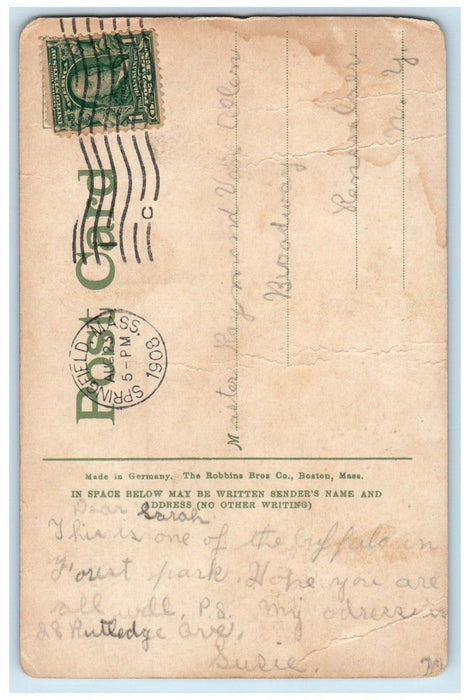 Post Card
SPRINGFIELD, MASS.
AUG 23
5-PM
1908
C
Master Raymond Van Allen
Broadway
Rensselaer
N. Y.
Made in Germany. The Robbins Bros Co., Boston, Mass.
IN SPACE BELOW MAY BE WRITTEN SENDER'S NAME AND
ADDRESS (NO OTHER WRITING)
Dear Sarah
This is one of the buffalo in
Forest park. Hope you are
all well. P.S. My adress is
28 Rutledge Ave.
Susie.